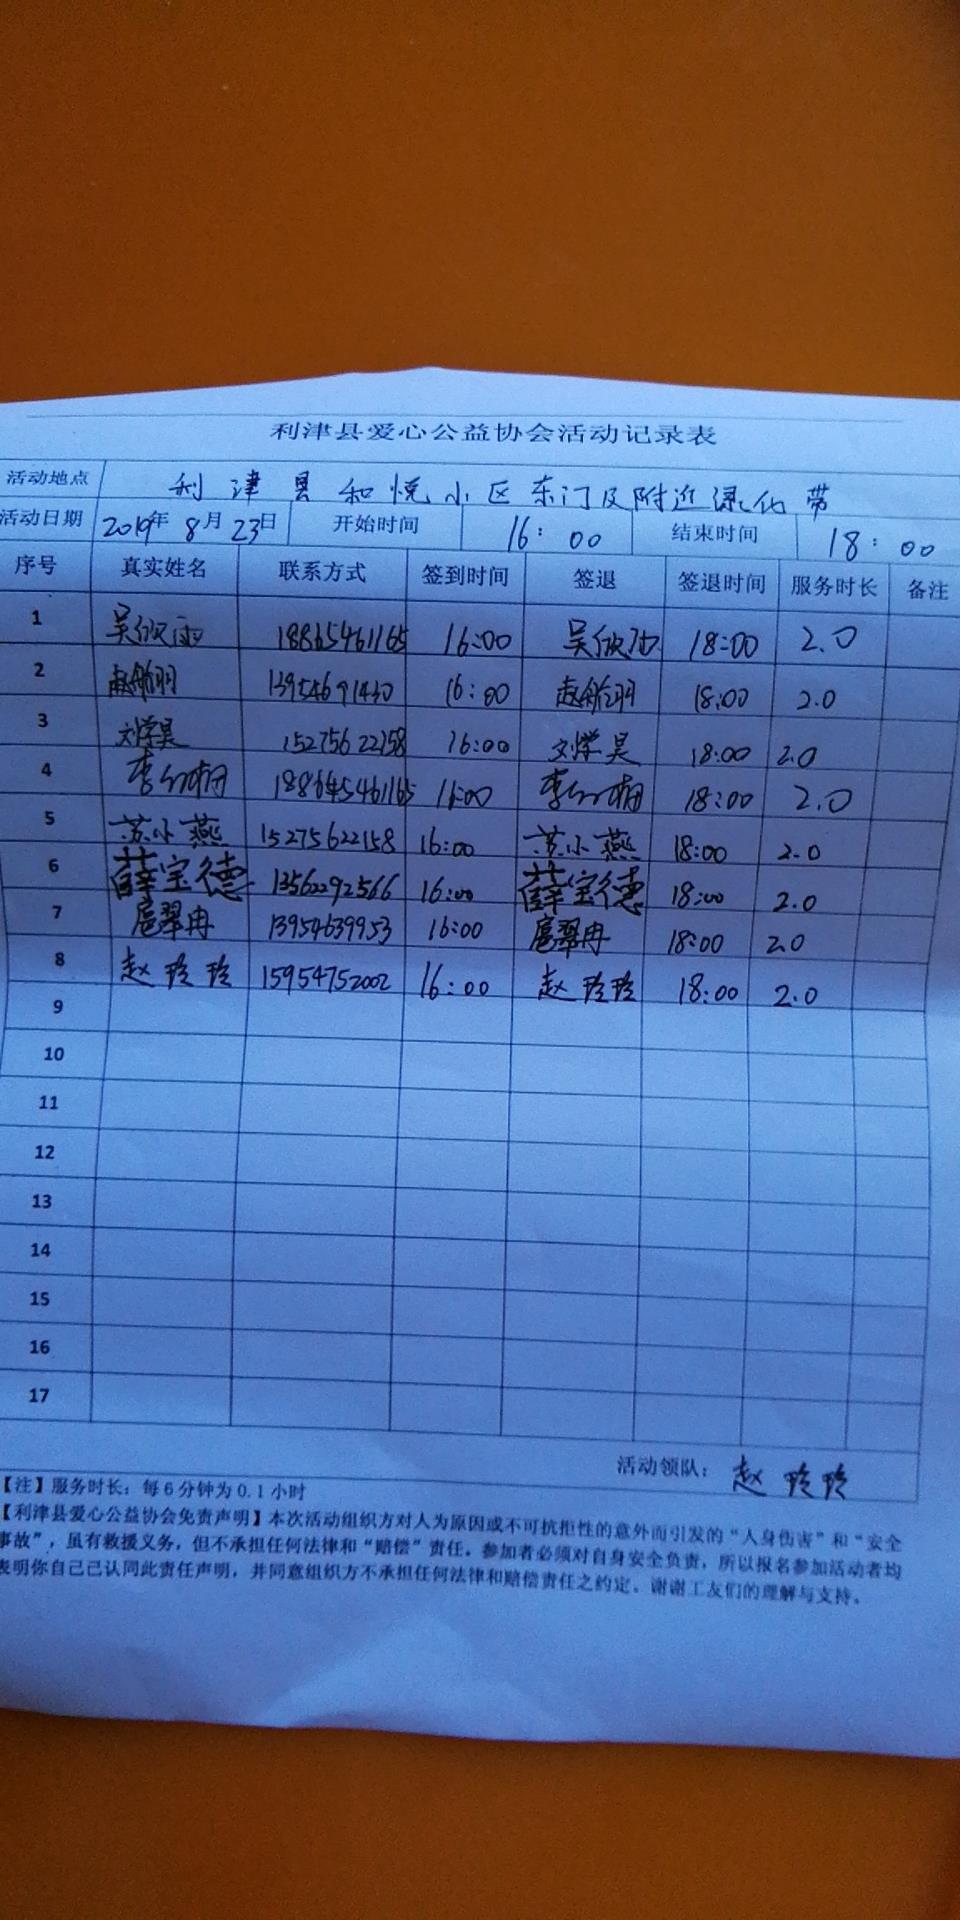 利津县爱心公益协会活动记录表
活动地点 利津县和悦小区东门及附近绿化带
活动日期 2019年8月23日 开始时间 16:00 结束时间 18:00
序号 真实姓名 联系方式 签到时间 签退 签退时间 服务时长 备注
1 吴欣雨 18865461165 16:00 吴欣雨 18:00 2.0
2 赵 羽 13954691430 16:00 赵 羽 18:00 2.0
3 刘学昊 15275622158 16:00 刘学昊 18:00 2.0
4 李 16:00 李 18:00 2.0
5 苏小燕 15275622158 16:00 苏小燕 18:00 2.0
6 薛宝德 13562292566 16:00 薛宝德 18:00 2.0
7 扈翠冉 13954639953 16:00 扈翠冉 18:00 2.0
8 赵玲玲 15954752002 16:00 赵玲玲 18:00 2.0
9
10
11
12
13
14
15
16
17
活动领队： 赵玲玲
【注】服务时长：每6分钟为0.1小时
【利津县爱心公益协会免责声明】本次活动组织方对人为原因或不可抗拒性的意外而引发的“人身伤害”和“安全
事故”，虽有救援义务，但不承担任何法律和“赔偿”责任。参加者必须对自身安全负责，所以报名参加活动者均
表明你自己已认同此责任声明，并同意组织方不承担任何法律和赔偿责任之约定。谢谢工友们的理解与支持。